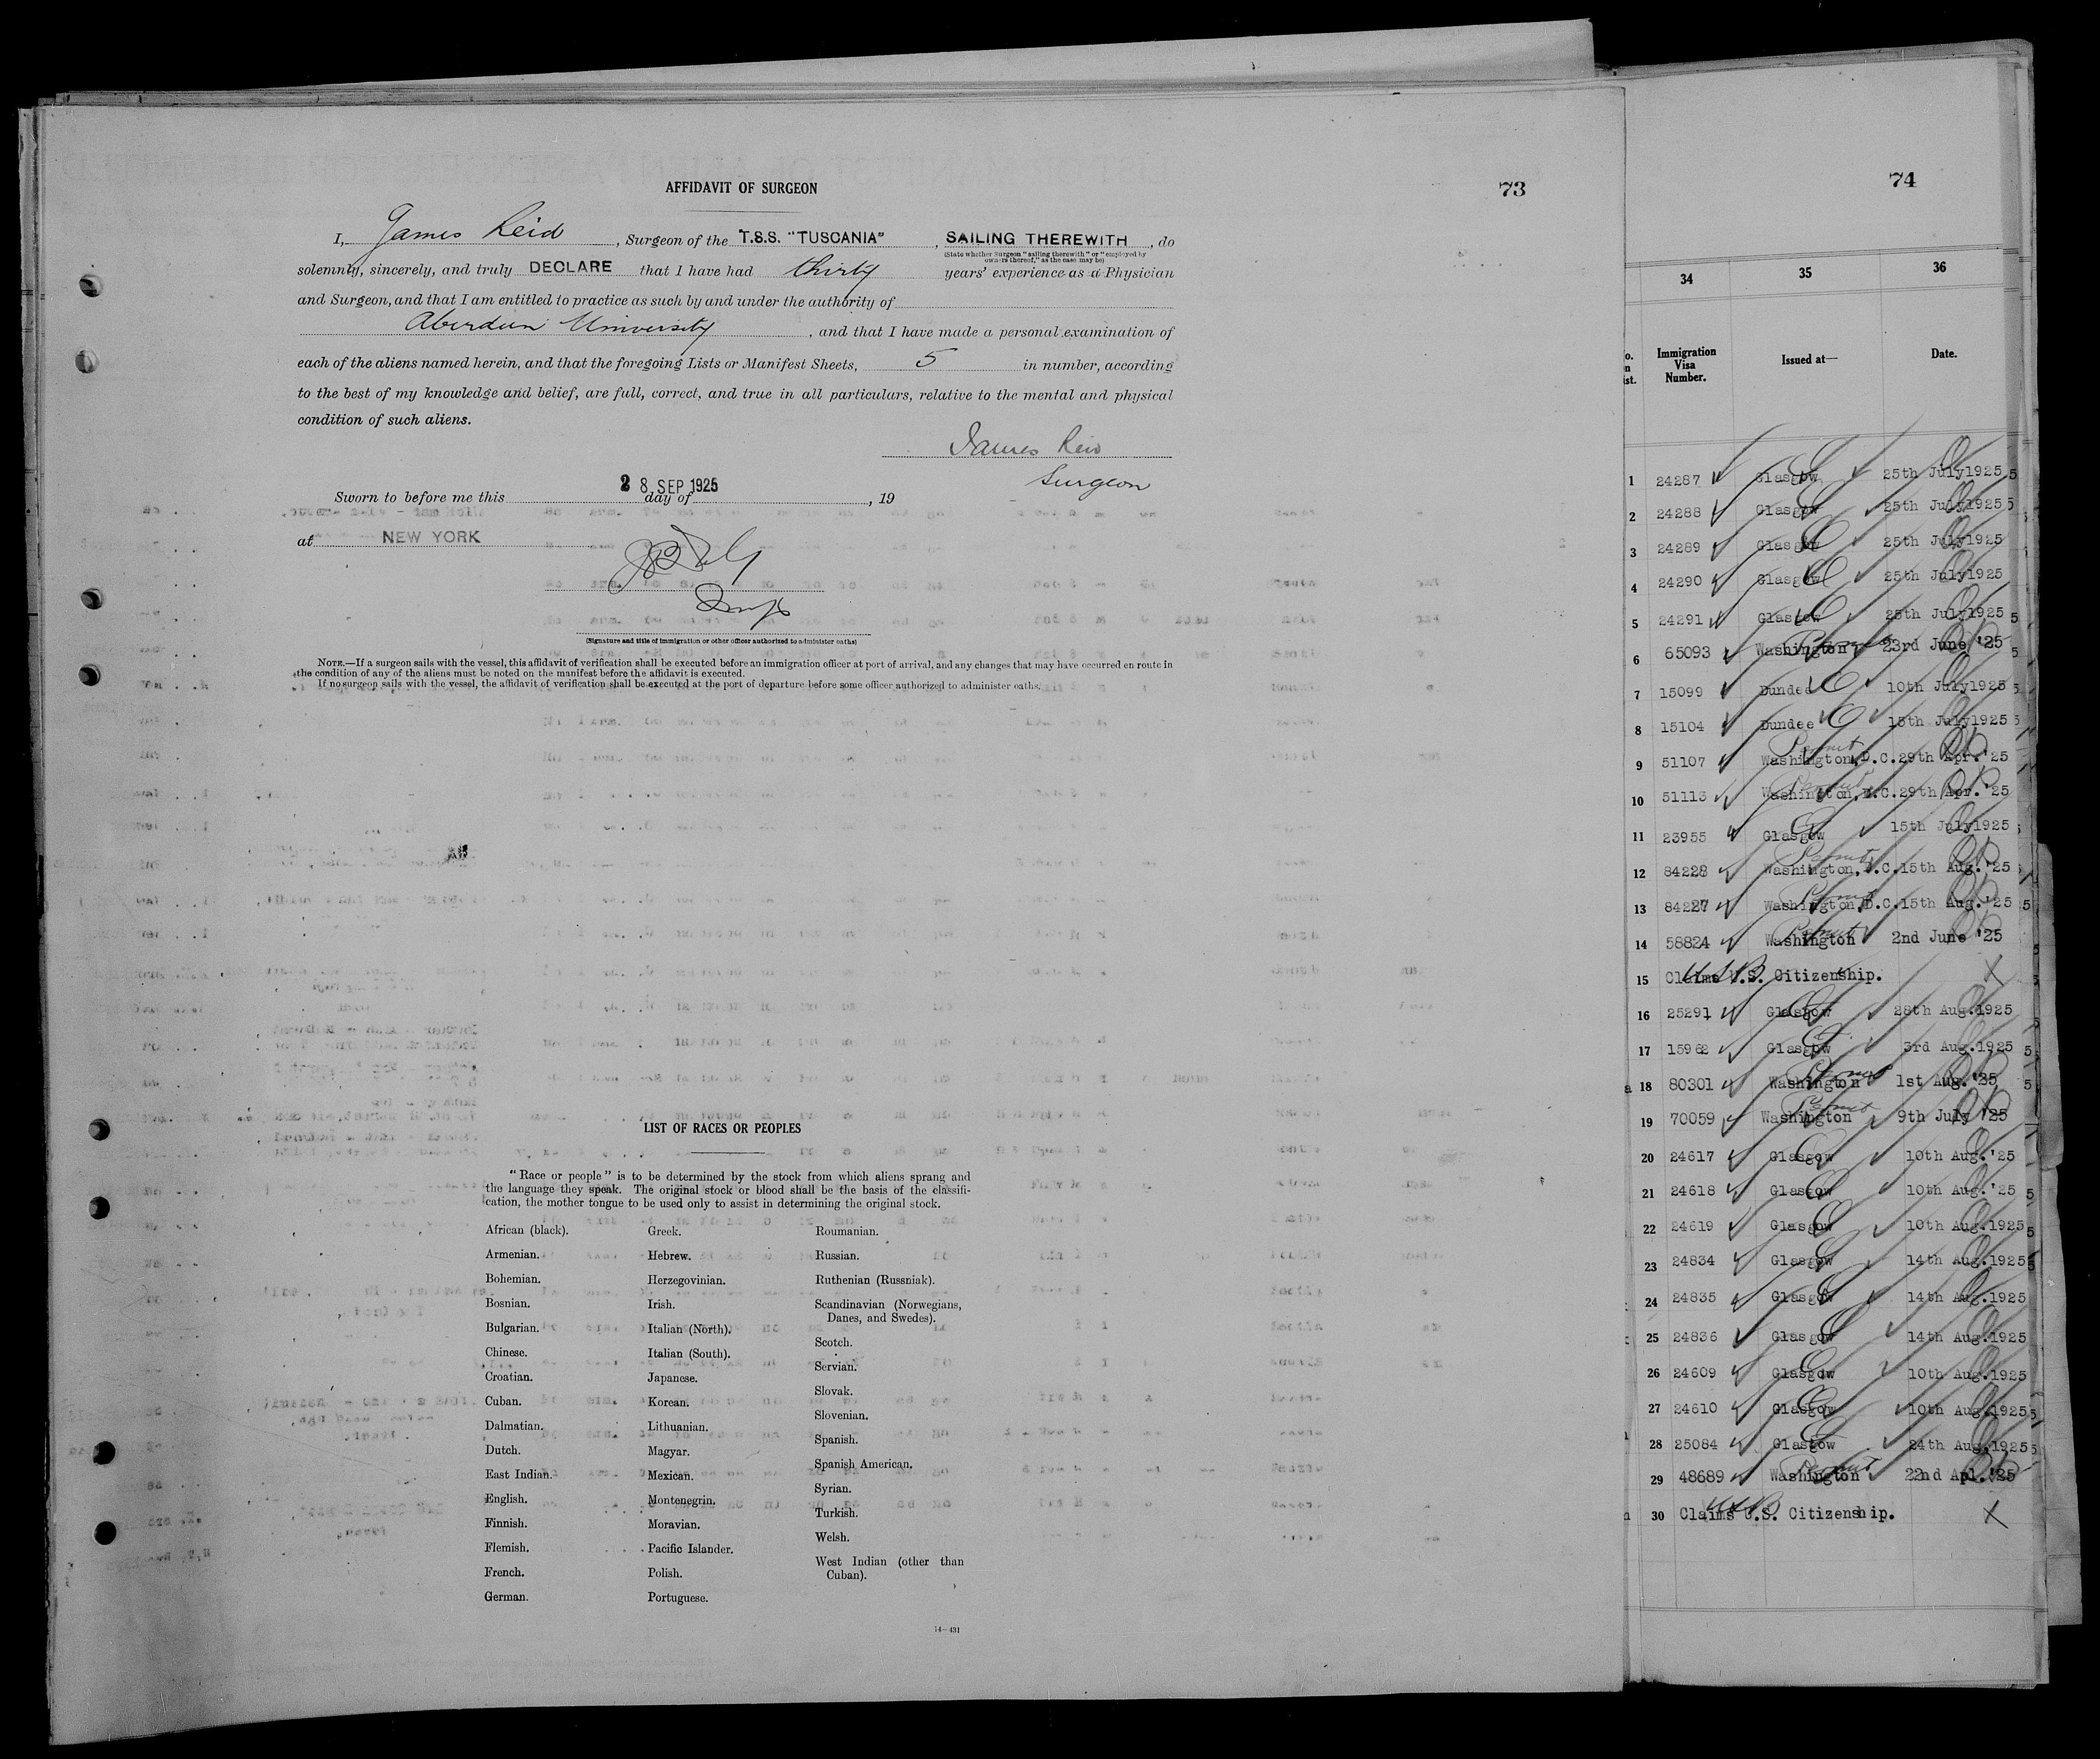 AFFIDAVIT OF SURGEON
73
I, James Reid, Surgeon of the T.S.S. "TUSCANIA", SAILING THEREWITH, do
(State whether Surgeon "sailing therewith" or "employed by
owners thereof," as the case may be)
solemnly, sincerely, and truly DECLARE that I have had thirty years' experience as a Physician
and Surgeon, and that I am entitled to practice as such by and under the authority of
Aberdeen University, and that I have made a personal examination of
each of the aliens named herein, and that the foregoing Lists or Manifest Sheets, 5 in number, according
to the best of my knowledge and belief, are full, correct, and true in all particulars, relative to the mental and physical
condition of such aliens.
James Reid
Surgeon
Sworn to before me this 28 SEP 1925 day of , 19
at NEW YORK
(Signature and title of immigration or other officer authorized to administer oaths)
NOTE.—If a surgeon sails with the vessel, this affidavit of verification shall be executed before an immigration officer at port of arrival, and any changes that may have occurred en route in
the condition of any of the aliens must be noted on the manifest before the affidavit is executed.
If no surgeon sails with the vessel, the affidavit of verification shall be executed at the port of departure before some officer authorized to administer oaths.
LIST OF RACES OR PEOPLES
"Race or people" is to be determined by the stock from which aliens sprang and
the language they speak. The original stock or blood shall be the basis of the classifi-
cation, the mother tongue to be used only to assist in determining the original stock.
African (black).
Armenian.
Bohemian.
Bosnian.
Bulgarian.
Chinese.
Croatian.
Cuban.
Dalmatian.
Dutch.
East Indian.
English.
Finnish.
Flemish.
French.
German.
Greek.
Hebrew.
Herzegovinian.
Irish.
Italian (North).
Italian (South).
Japanese.
Korean.
Lithuanian.
Magyar.
Mexican.
Montenegrin.
Moravian.
Pacific Islander.
Polish.
Portuguese.
Roumanian.
Russian.
Ruthenian (Russniak).
Scandinavian (Norwegians,
Danes, and Swedes).
Scotch.
Servian.
Slovak.
Slovenian.
Spanish.
Spanish American.
Syrian.
Turkish.
Welsh.
West Indian (other than
Cuban).
14—431
74
34 35 36
Immigration
Visa
Number.
Issued at—
Date.
1 24287 Glasgow 25th July1925
2 24288 Glasgow 25th July1925
3 24289 Glasgow 25th July1925
4 24290 Glasgow 25th July1925
5 24291 Glasgow 25th July1925
6 65093 Washington 23rd June '25
7 15099 Dundee 10th July1925
8 15104 Dundee 15th July1925
9 51107 Permit Washington, D.C. 29th Apr. '25
10 51113 Permit Washington, D.C. 29th Apr. '25
11 23955 Glasgow 15th July1925
12 84228 Permit Washington, D.C. 15th Aug. '25
13 84227 Permit Washington, D.C. 15th Aug. '25
14 58824 Permit Washington 2nd June '25
15 Claims U.S. Citizenship.
16 25291 Glasgow 28th Aug.1925
17 15962 Glasgow 3rd Aug.1925
18 80301 Permit Washington 1st Aug. '25
19 70059 Permit Washington 9th July '25
20 24617 Glasgow 10th Aug.'25
21 24618 Glasgow 10th Aug.'25
22 24619 Glasgow 10th Aug.1925
23 24834 Glasgow 14th Aug.1925
24 24835 Glasgow 14th Aug.1925
25 24836 Glasgow 14th Aug.1925
26 24609 Glasgow 10th Aug.1925
27 24610 Glasgow 10th Aug.1925
28 25084 Glasgow 24th Aug.1925
29 48689 Permit Washington 22nd Apl.'25
30 Claims U.S. Citizenship.